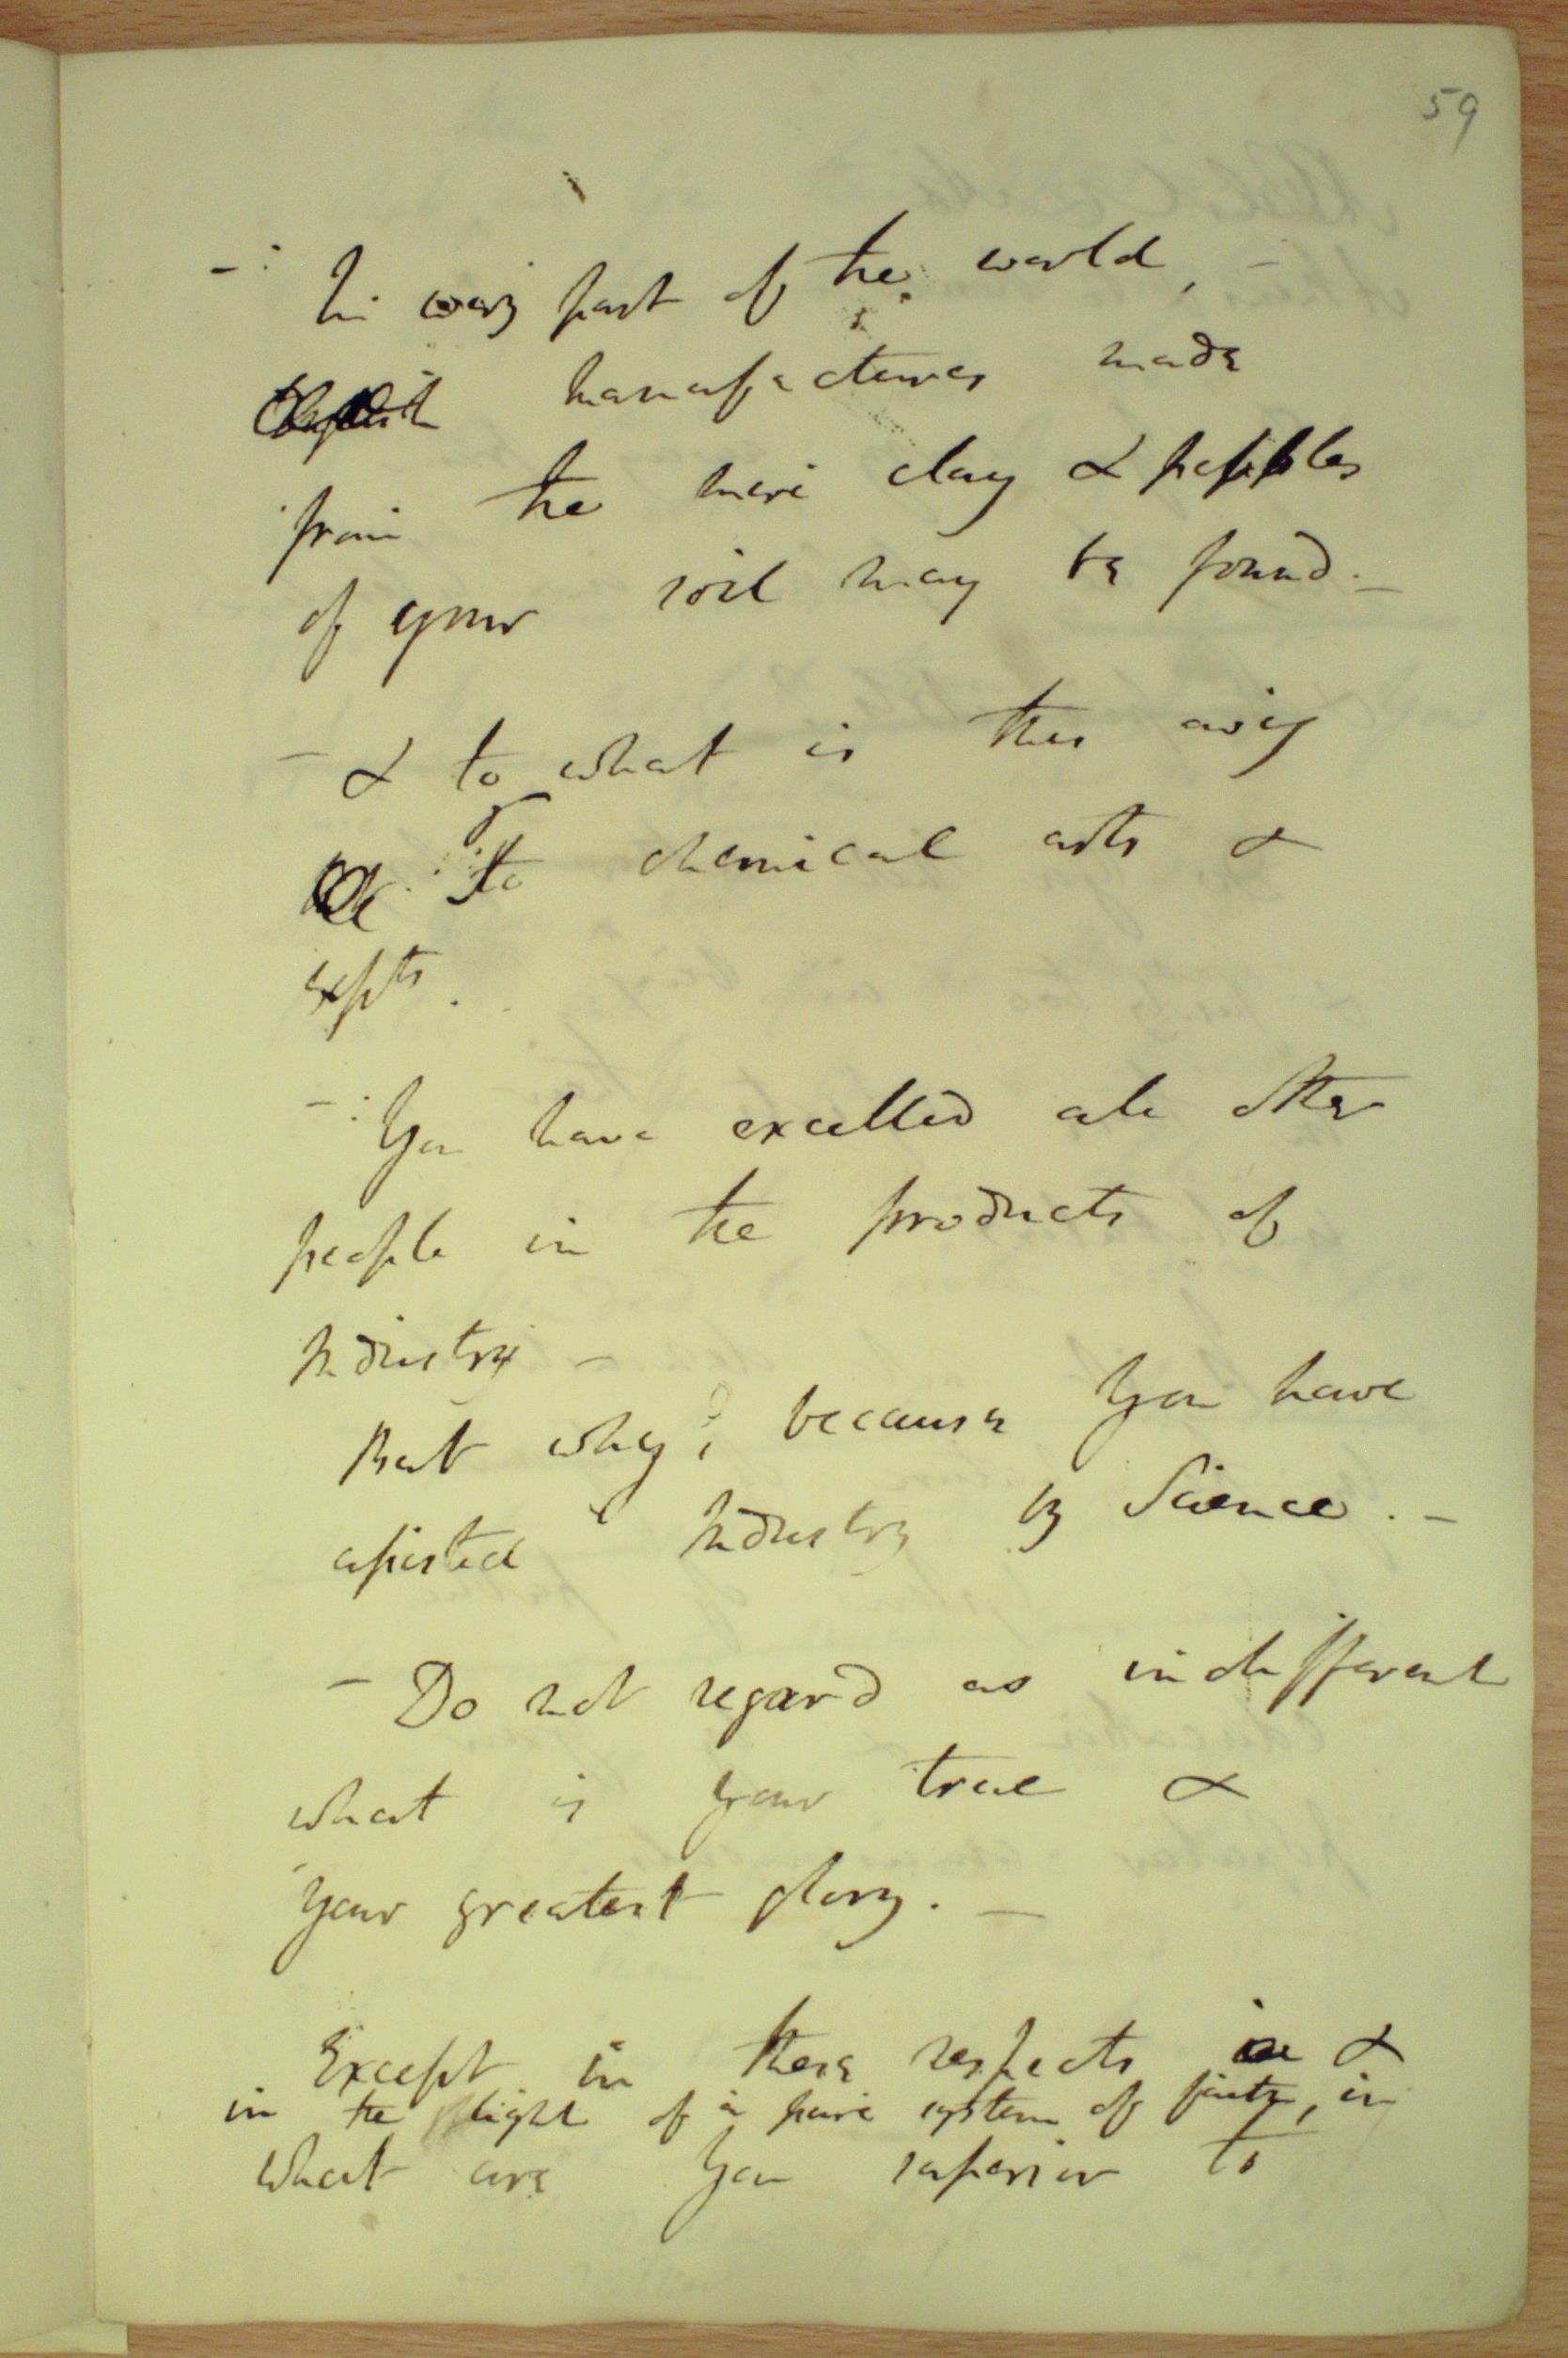 59
- In every part of the world, -
manufactures made
from the mere clay & pebbles
of your soil may be found. -
- & to what is this owing
to chemical arts &
expts.
- You have excelled all other
people in the products of
Industry -
But why? because You have
assisted Industry by Science. -
- Do not regard as indifferent
what is your true &
Your greatest glory. -
Except in these respects &
in the light of a pure system of faith, in
What are You superior to